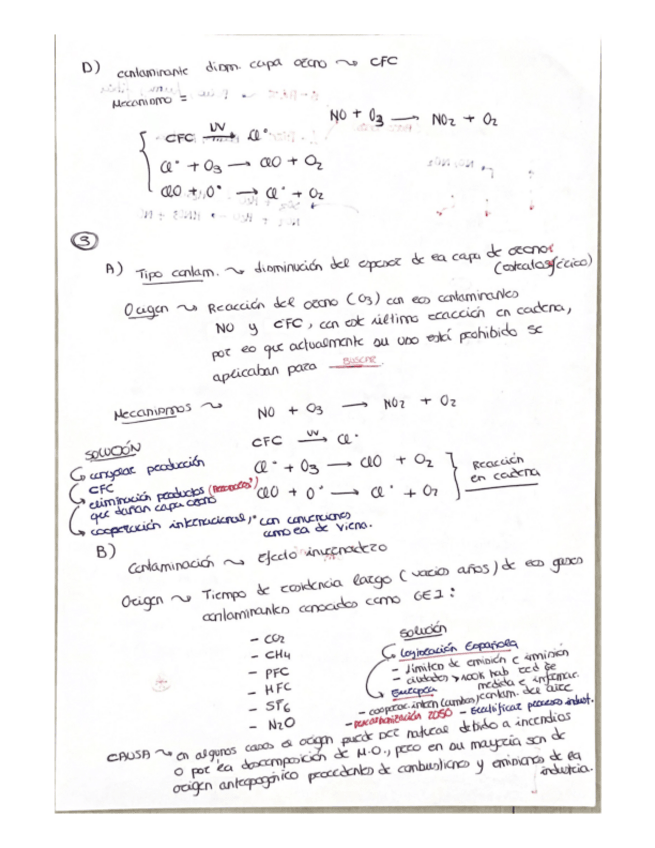 D) contaminante dism. capa ozono ~> CFC
Mecanismo =
NO + O3 → NO2 + O2
CFC UV→ Cl·
Cl· + O3 → ClO + O2
ClO + O· → Cl· + O2
3
A) Tipo contam. ~> disminución del espesor de la capa de ozono
(estratosférico)
Origen ~> Reacción del ozono (O3) con los contaminantes
NO y CFC, con este último reacción en cadena,
por lo que actualmente su uso está prohibido se
aplicaban para BUSCAR
Mecanismos ~> NO + O3 → NO2 + O2
CFC UV→ Cl·
Cl· + O3 → ClO + O2
ClO + O· → Cl· + O2
Reacción
en cadena
SOLUCIÓN
producción
CFC
eliminación productos
que dañan capa ozono
cooperación internacional, con convenciones
como la de Viena.
B)
Contaminación ~> Efecto invernadero
Origen ~> Tiempo de residencia largo (varios años) de los gases
contaminantes conocidos como GEI:
- CO2
- CH4
- PFC
- HFC
- SF6
- N2O
Solución
Legislación Española
- límites de emisión e inmisión
- ciudades > 100K hab red de
medida e informac.
Europea
- cooperac. intern (ambos) contam. del aire
- Descarbonización 2050 - Electrificar procesos indust.
CAUSA ~> en algunos casos el origen puede ser natural debido a incendios
o por la descomposición de M.O., pero en su mayoría son de
origen antropogénico procedentes de combustiones y emisiones de la
industria.